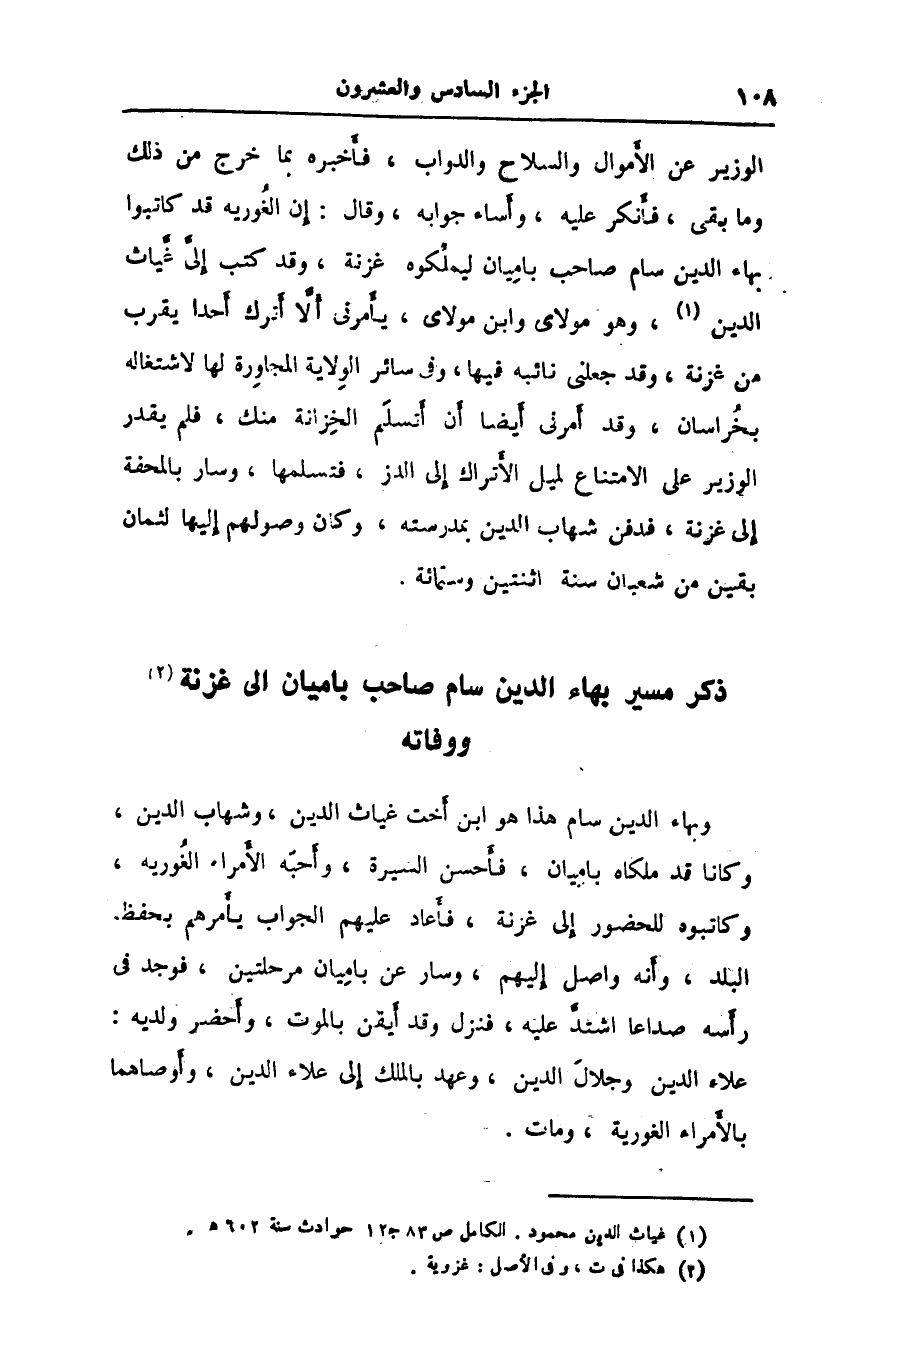 ١٠٨ الجزء السادس والعشرون
الوزير عن الأموال والسلاح والدواب ، فأخبره بما خرج من ذلك
وما بقى ، فأنكر عليه ، وأساء جوابه ، وقال : إن الغُوريه قد كاتبوا
بهاء الدين سام صاحب باميان ليملُكوه غزنة ، وقد كتب إلىَّ غَياث
الدين (١) ، وهو مولاى وابن مولاى ، يأمرنى ألَّا أترك أحدا يقرب
من غزنة ، وقد جعلنى نائبه فيها ، وفى سائر الوِلاية المجاوِرة لها لاشتغاله
بخُراسان ، وقد أمرنى أيضا أن أتسلَّم الخِزانة منك ، فلم يقدر
الوزير على الامتناع لميل الأتراك إلى الدز ، فتسلمها ، وسار بالمحفة
إلى غزنة ، فدفن شهاب الدين بمدرسته ، وكان وصولهم إليها لثمان
بقين من شعبان سنة اثنتين وستمائة .
ذكر مسير بهاء الدين سام صاحب باميان الى غزنة (٢)
ووفاته
وبهاء الدين سام هذا هو ابن أخت غياث الدين ، وشهاب الدين ،
وكانا قد ملكاه باميان ، فأحسن السيرة ، وأحبّه الأمراء الغُوريه ،
وكاتبوه للحضور إلى غزنة ، فأعاد عليهم الجواب يأمرهم بحفظ
البلد ، وأنه واصل إليهم ، وسار عن باميان مرحلتين ، فوجد فى
رأسه صداعا اشتدَّ عليه ، فنزل وقد أيقن بالموت ، وأحضر ولديه :
علاء الدين وجلالَ الدين ، وعهد بالملك إلى علاء الدين ، وأوصاهما
بالأمراء الغورية ، ومات .
(١) غياث الدين محمود . الكامل ص ٨٣ ج١٢ حوادث سنة ٦٠٢ هـ .
(٢) هكذا فى ت ، وفى الأصل : غزوية .